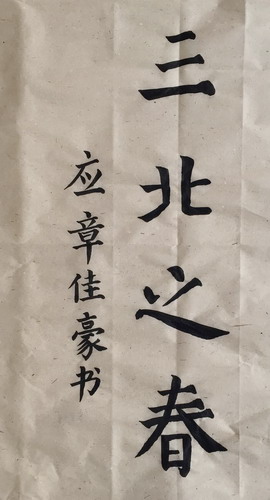 三北之春
应章佳豪书